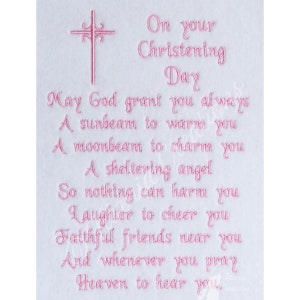 On your
Christening
Day
May God grant you always
A sunbeam to warm you
A moonbeam to charm you
A sheltering angel
So nothing can harm you
Laughter to cheer you
Faithful friends near you
And whenever you pray
Heaven to hear you.